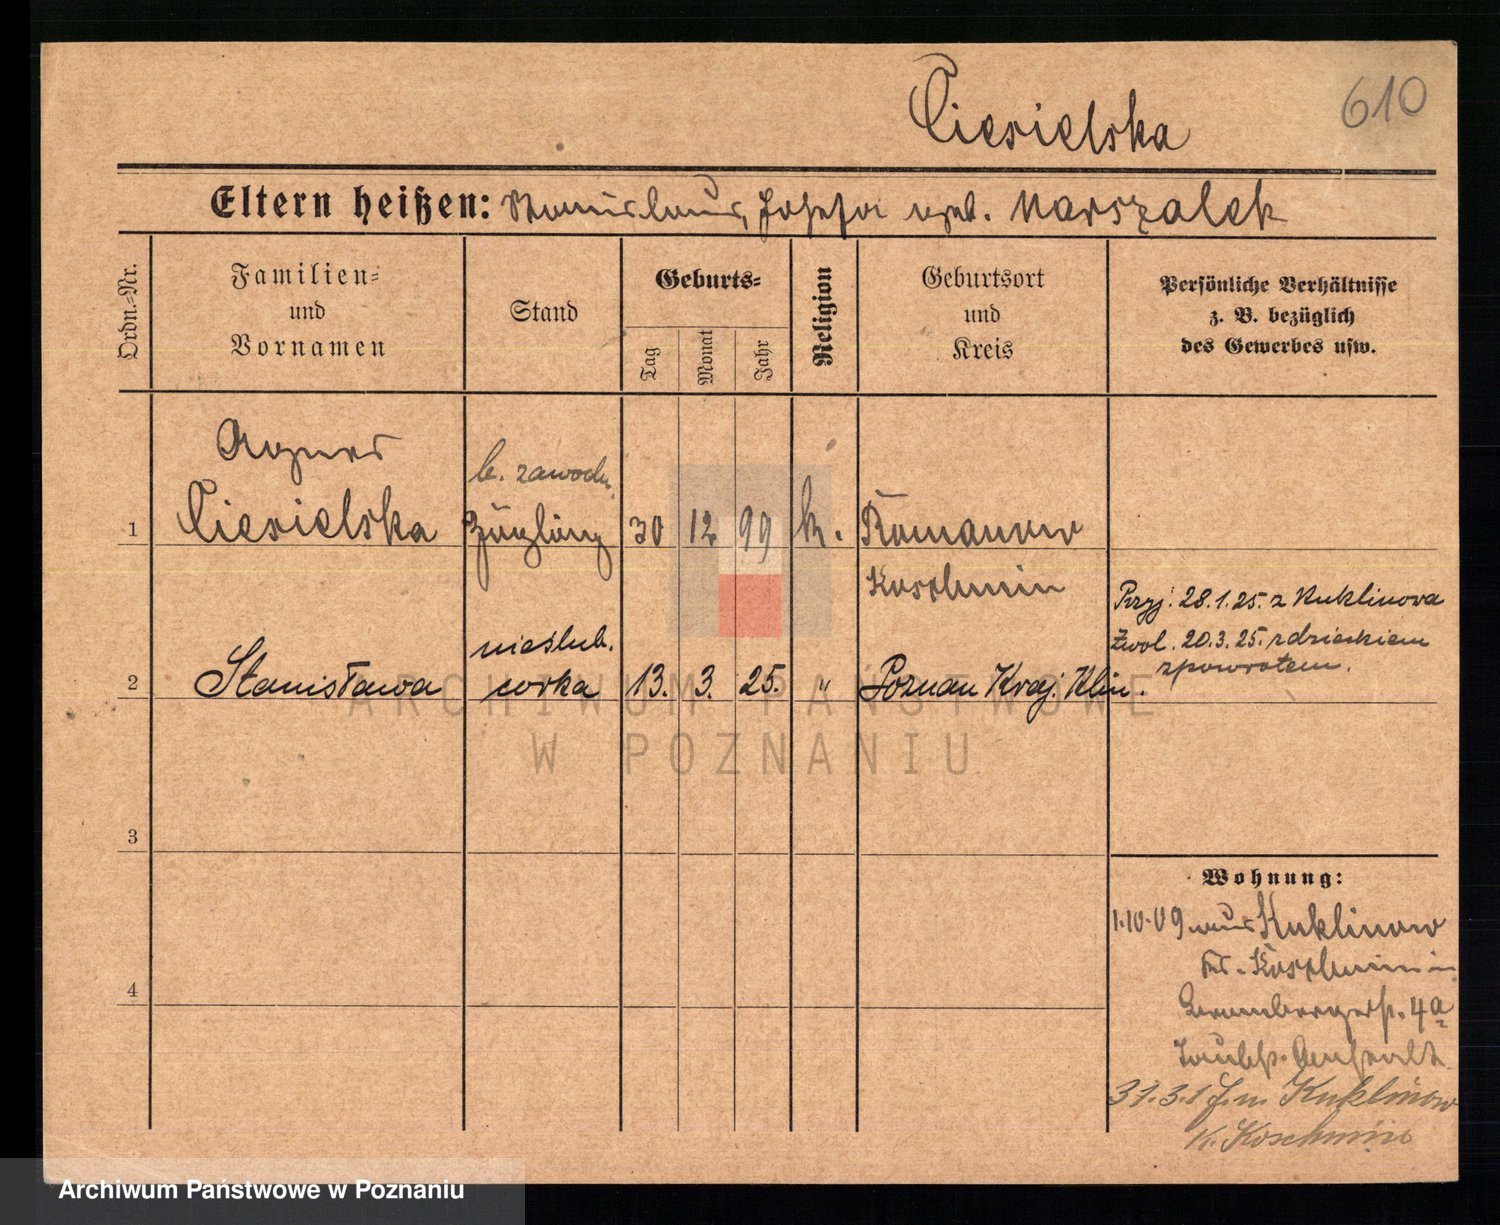 Ciesielska
610
Eltern heißen: Stanislaus, Josefa geb. Marszalek
Ordn.=Nr.
Familien=
und
Vornamen
Stand
Geburts=
Tag
Monat
Jahr
Religion
Geburtsort
und
Kreis
Persönliche Verhältnisse
z. B. bezüglich
des Gewerbes usw.
Agnes
b. zawodu.
1 Ciesielska Zögling 30 12 99 k. Romanow
Koschmin
Przyj. 28.1.25. z Kuklinowa
Zwol. 20.3.25. z dzieckiem
zpowrotem.
nieślub.
2 Stanisława corka 13. 3. 25. " Poznan Kraj. Klin.
3
4
Wohnung:
1.10.09 aus Kuklinow
Kr. Koschmin in
Brombergerstr. 4a
Taubst. Anstalt
31.3.1 Kuklinow
K. Koschmin
ARCHIWUM PAŃSTWOWE
W POZNANIU
Archiwum Państwowe w Poznaniu